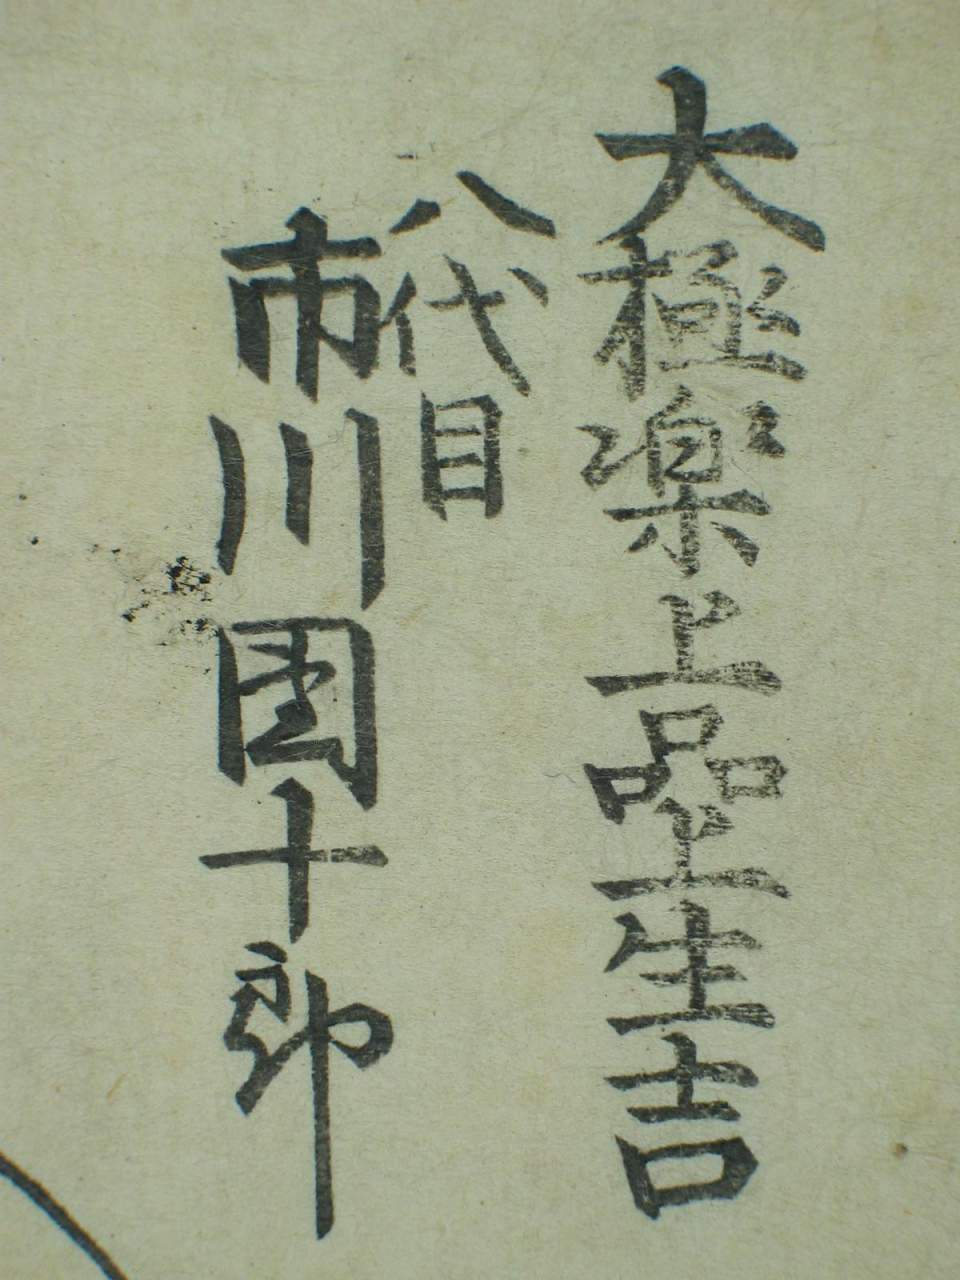 大極楽上品上生吉
八代目
市川団十郎